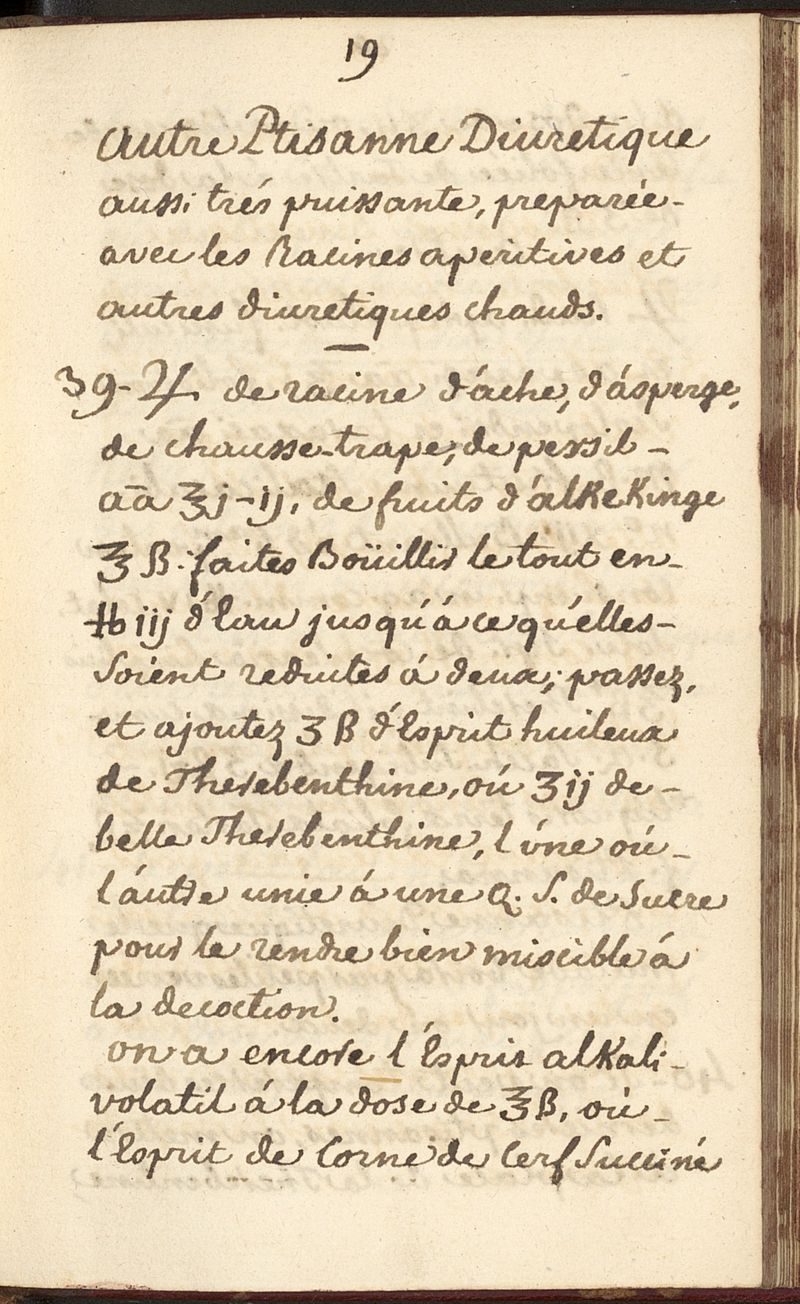 19
Autre Ptisanne Diuretique
aussi trés puissante, preparée-
avec les Racines aperitives et
autres diuretiques chauds.
39-♃ de racine d'áche, d'ásperge,
de chausse-trape, de persil-
aā ℥j-ij, de fruits d'alkeKinge
℥ß. faites Boüillir le tout en-
℔iij d'Eau jusqu'á ce qu'elles-
Soient reduites á deux; passez,
et ajoutez ʒß d'Esprit huileux
de Therebenthine, oú ʒij de-
belle Therebenthine, l'úne oú-
l'áutre unie á une Q. S. de Sucre
pour le rendre bien miscible á
la decoction.
on a encore l'Esprit alKali-
volatil á la dose de ℥ß, oú-
l'Esprit de Corne de Cerf Succiné